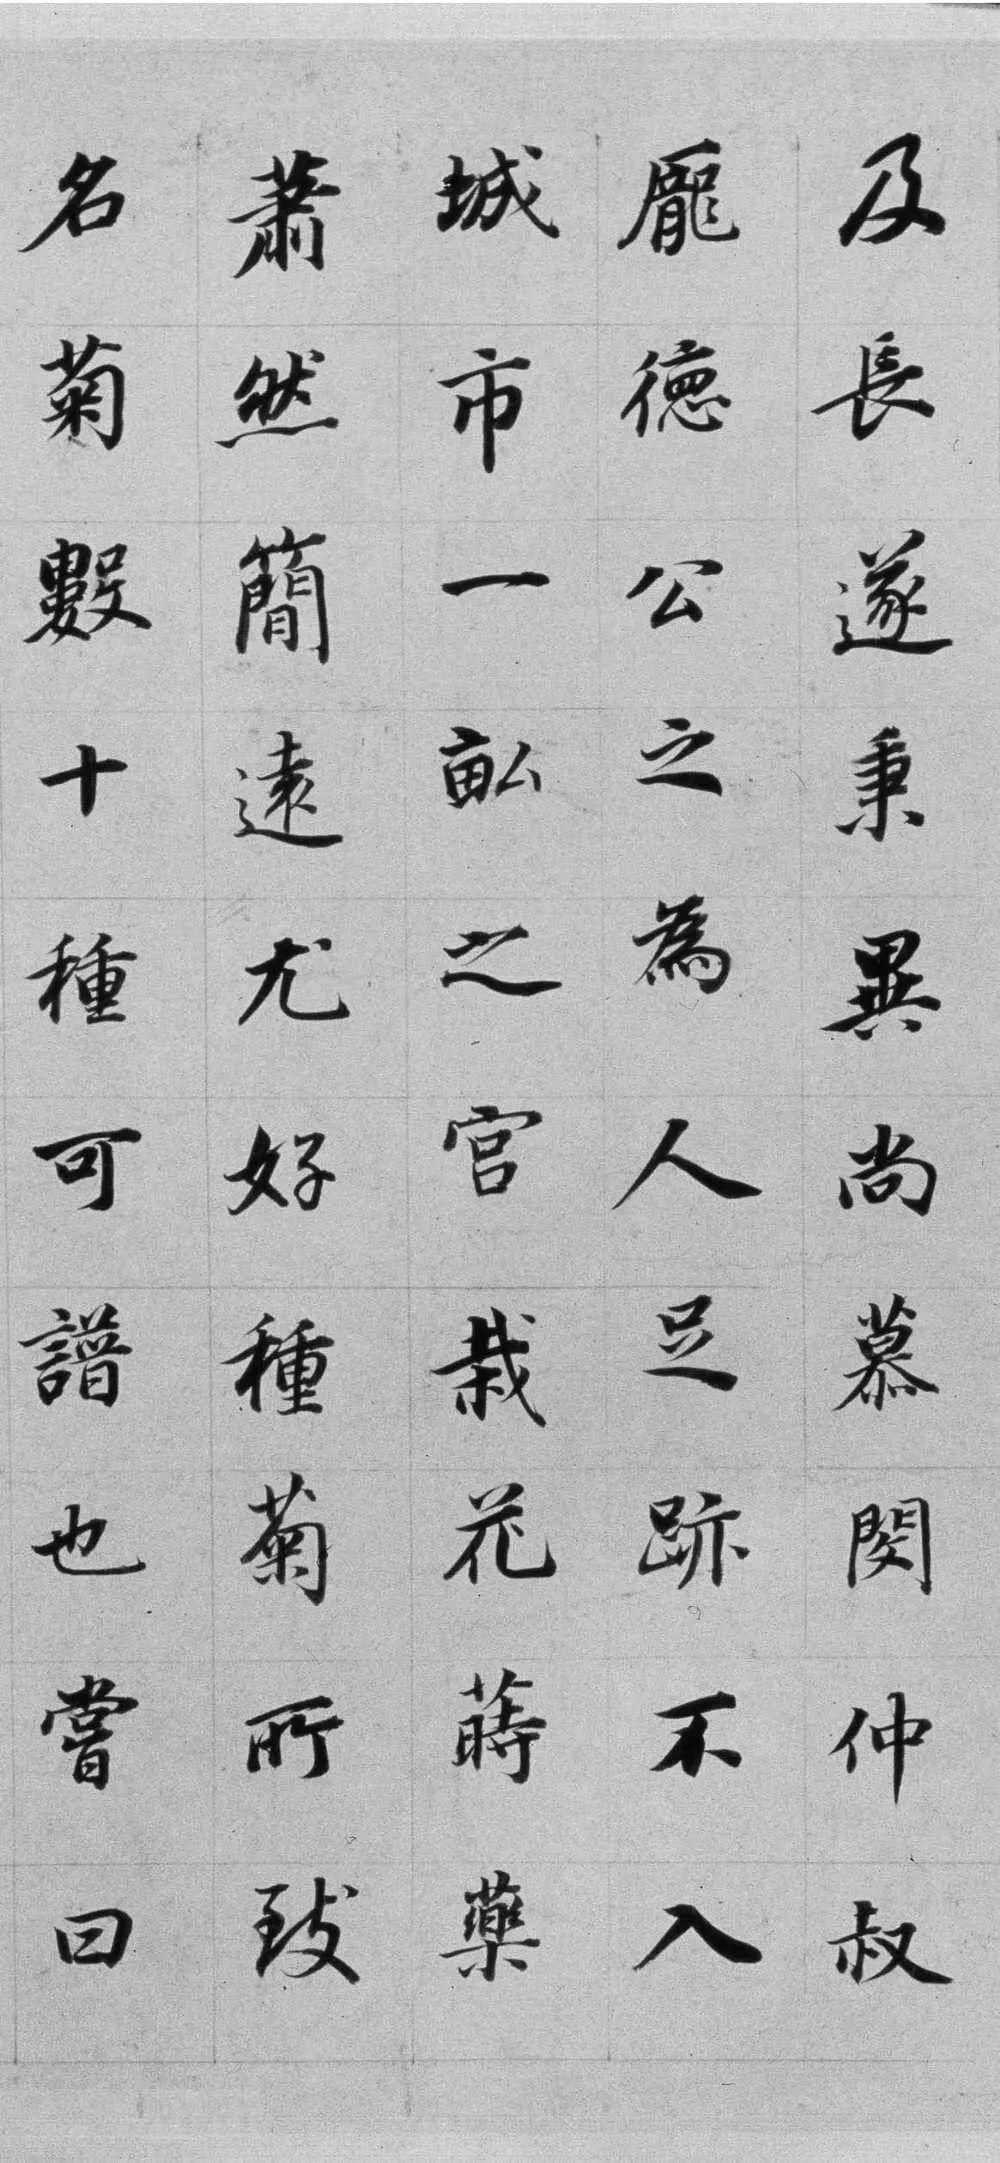 及長遂秉異尚慕閔仲叔
龐德公之為人足跡不入
城市一畝之宮栽花蒔藥
蕭然簡遠尤好種菊所致
名菊數十種可譜也嘗曰